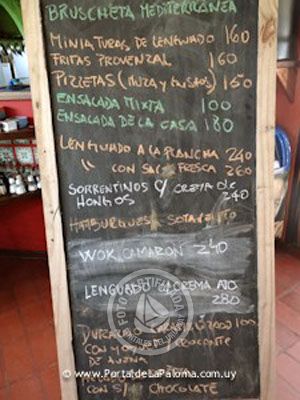 BRUSCHETA MEDITERRANEA
MINIATURAS DE LENGUADO 160
FRITAS PROVENZAL 160
PIZZETAS (MUZA Y GUSTOS) 150
ENSALADA MIXTA 100
ENSALADA DE LA CASA 180
LENGUADO A LA PLANCHA 240
" CON SALSA FRESCA 260
SORRENTINOS C/ CREMA DE
HONGOS 240
HAMBURGUESA
WOK CAMARON 240
LENGUADO CREMA AJO
280
DURAZNO 100
CON YOGUR Y CROCANTE
DE AVENA
HELADO
CON S/ CHOCOLATE
© www.PortaldeLaPaloma.com.uy